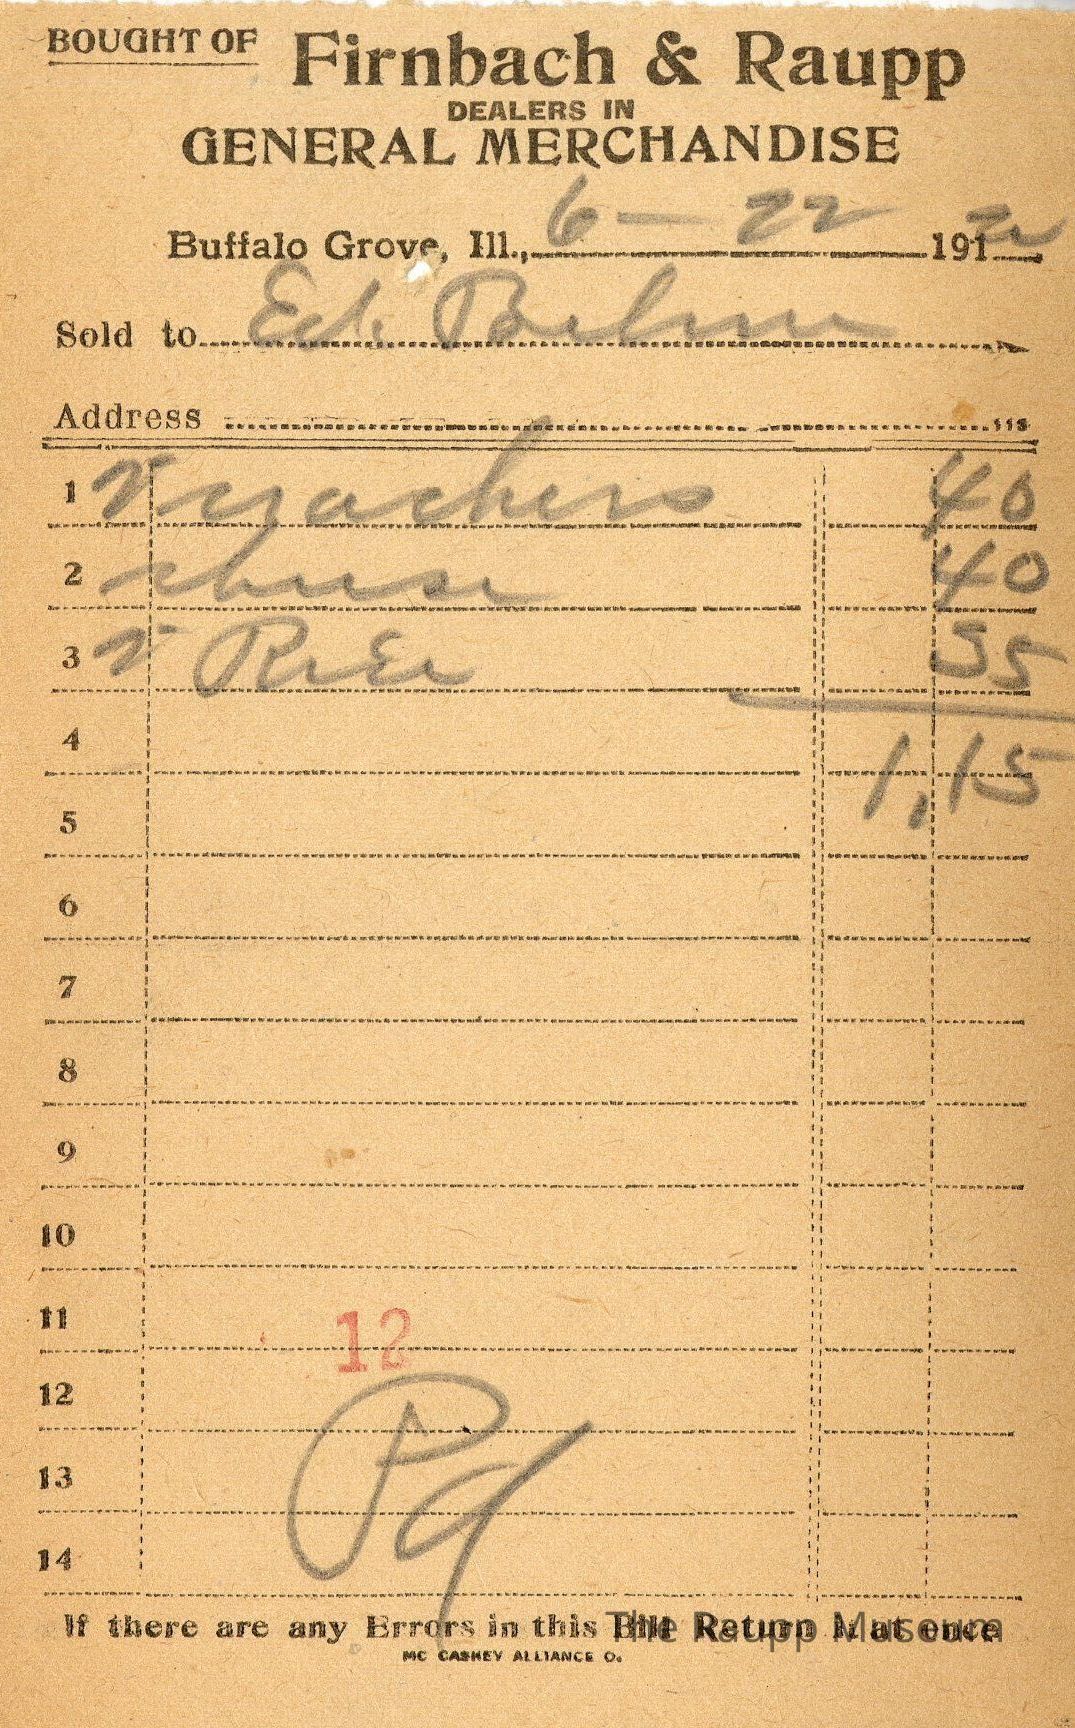 BOUGHT OF Firnbach & Raupp
DEALERS IN
GENERAL MERCHANDISE
Buffalo Grove, Ill., 6 - 22 191
Sold to Ed.
Address
1 40
2 40
3 Rice 35
4 1,15
5
6
7
8
9
10
11
12
12
13
14
Pd
If there are any Errors in this Bill Return it at once
The Raupp Museum
MC CASKEY ALLIANCE O.